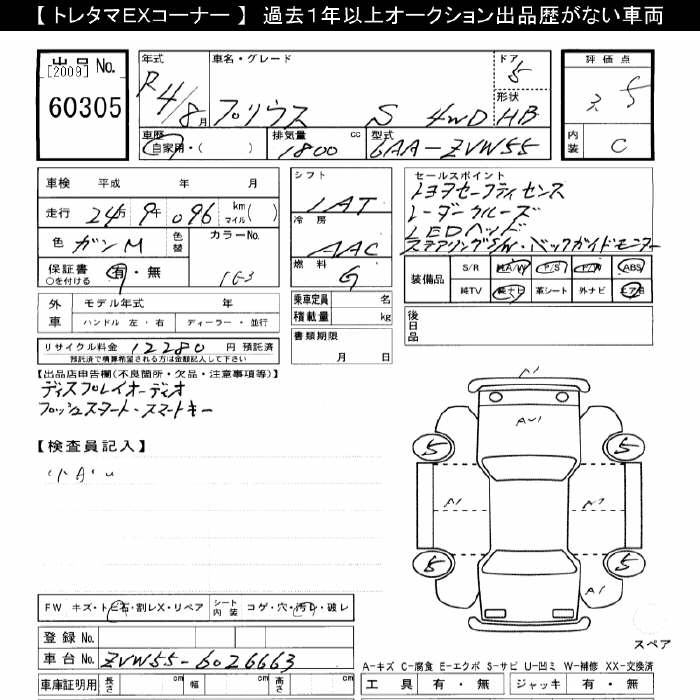 【 トレタマEXコーナー 】 過去1年以上オークション出品歴がない車両
出品 No.
[2009]
60305
年式
R4/8月
車名・グレード
プリウス S 4WD
ドア
5
形状
HB
評価点
5
内装
C
車歴
自家用・( )
排気量 cc
1800
型式
6AA-ZVW55
車検 平成 年 月
走行 24万 9千 096 km マイル( )
色 ガンM 色替
カラーNo.
1G3
保証書 ○を付ける 有・無
外車
モデル年式 年
ハンドル 左・右 ディーラー・並行
リサイクル料金 12280 円 預託済
預託済で積算希望される方は金額記入して下さい
シフト
IAT
冷房
AAC
燃料
G
乗車定員 名
積載量 kg
書類期限
月 日
セールスポイント
トヨタセーフティセンス
レーダークルーズ
LEDヘッド
ステアリングS/W・バックガイドモニター
装備品
S/R P/S P/W ABS
純TV 純ナビ 革シート 外ナビ エアB
後日品
【出品店申告欄(不良箇所・欠品・注意事項等)】
ディスプレイオーディオ
プッシュスタート・スマートキー
【検査員記入】
小A.u
5
5
5
5
AU1
A1
A1
FW キズ・トビ石・割レX・リペア シート内装 コゲ・穴・汚レ・破レ
登録 No.
車台 No. ZVW55-6026663
車庫証明用 長さ cm 幅 cm 高さ cm
スペア
A-キズ C-腐食 E-エクボ S-サビ U-凹ミ W-補修 XX-交換済
工具 有・無 ジャッキ 有・無